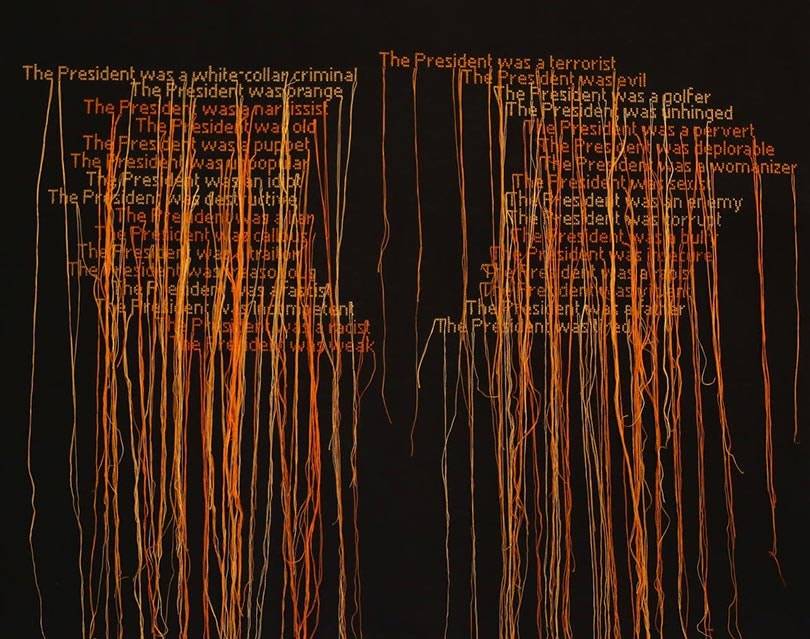 The President was a white-collar criminal
The President was orange
The President was a narcissist
The President was old
The President was a puppet
The President was
The President was an idiot
The President was destructive
The President was a liar
The President was callous
The President was a traitor
The President was treasonous
The President was a fascist
The President was incompetent
The President was a racist
The President was weak
The President was a terrorist
The President was evil
The President was a golfer
The President was unhinged
The President was a pervert
The President was deplorable
The President was a womanizer
The President was sexist
The President was an enemy
The President was corrupt
The President was a bully
The President was insecure
The President was a
The President was a
The President was a
The President was